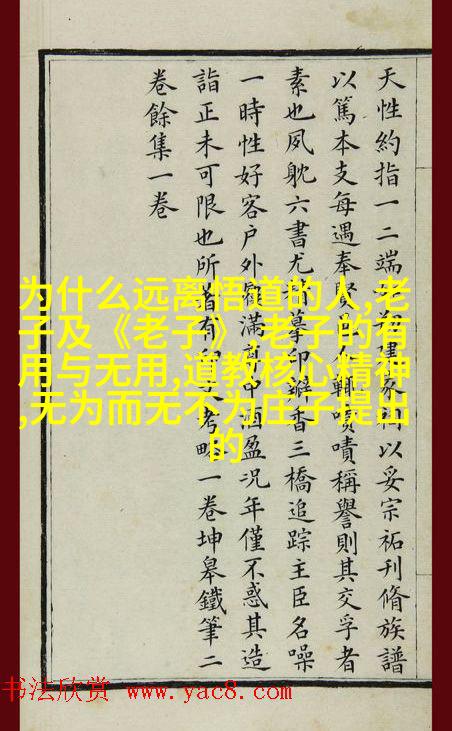 天性約指一二端建家以妥宗祏刊脩族譜
以篤本支每遇奉賢輒嘖嘖稱譽則其交孚者
素也夙躭六書尤摹印瓣香三橋追踪主臣名噪
一時性好客户外滿中酒盈况年僅不惑其造
詣正未可限也所著有考略一卷坤皋鐵筆二
卷餘集一卷
为什么远离悟道的人,老
子及《老子》,老子的有
用与无用,道教核心精神
,无为而无不为庄子提出
的
书法欣赏 www.yac8.com